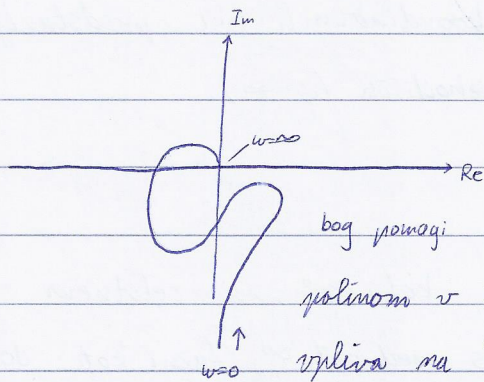 Im
ω=∞
Re
bog pomagi
polinom v
ω=0
vpliva na